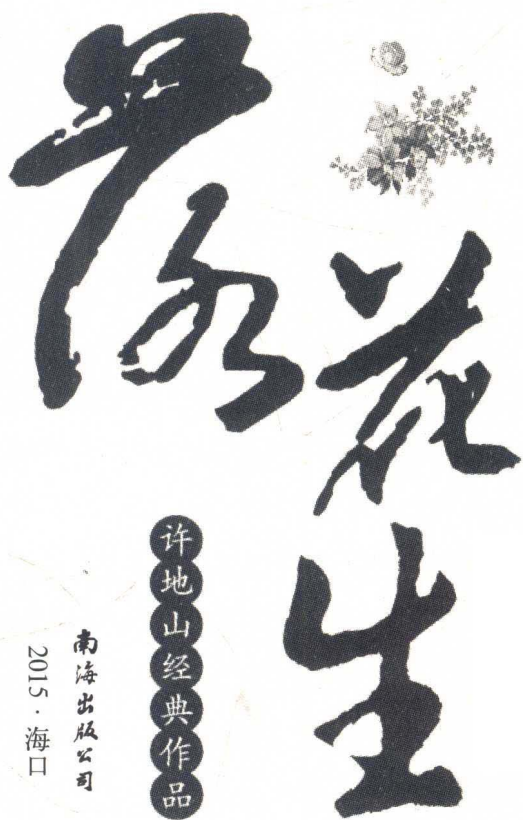 落花生
许地山经典作品
南海出版公司
2015·海口